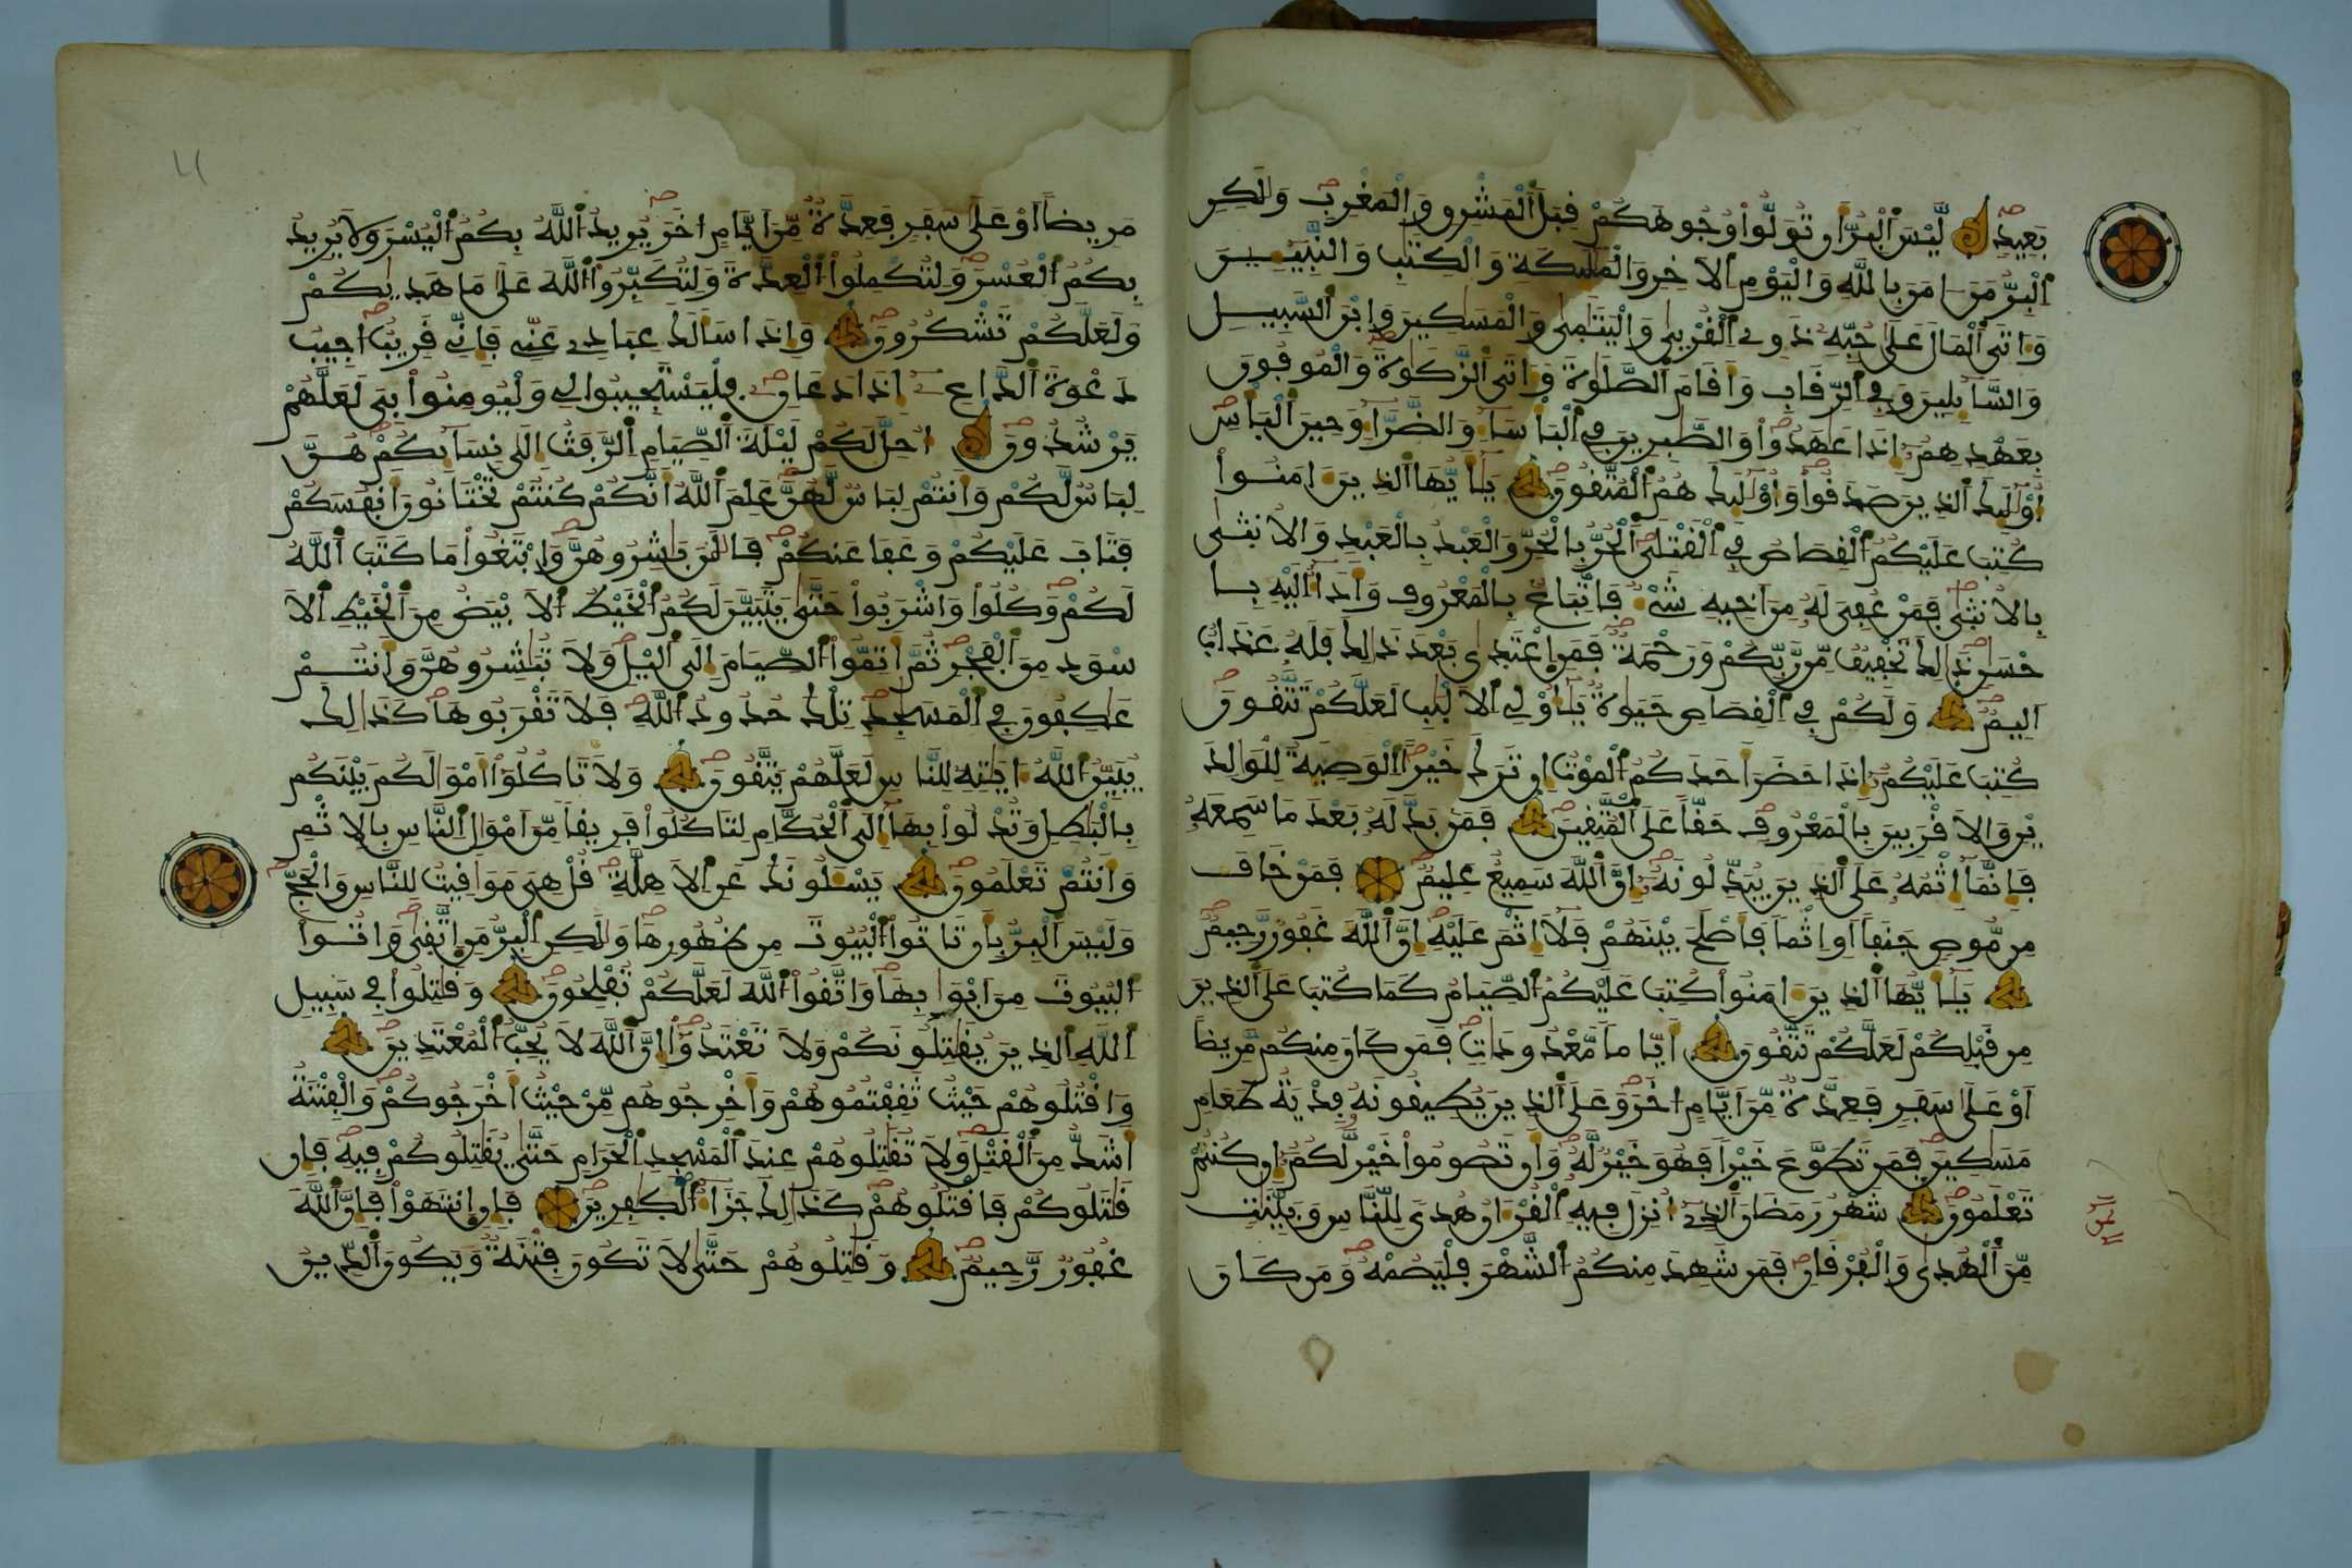 بعيد ليس البر أن تولوا وجوهكم قبل المشرق والمغرب ولكن
البر من امن بالله واليوم الاخر والمليكة والكتب والنبيين
واتى المال على حبه ذوى القربى واليتمى والمسكين وابن السبيل
والسايلين وفى الرقاب واقام الصلوة واتى الزكوة والموفون
بعهدهم اذا عهدوا والصبرين فى الباسا والضرا وحين الباس
اوليك الذين صدقوا واوليك هم المتقون يايها الذين امنوا
كتب عليكم القصاص فى القتلى الحر بالحر والعبد بالعبد والانثى
بالانثى فمن عفى له من اخيه شىء فاتباع بالمعروف واداء اليه با
حسن ذلك تخفيف من ربكم ورحمة فمن اعتدى بعد ذلك فله عذاب
اليم ولكم فى القصاص حيوة ياولى الالبب لعلكم تتقون
كتب عليكم اذا حضر احدكم الموت ان ترك خيرا الوصية للولد
ين والاقربين بالمعروف حقا على المتقين فمن بدله بعد ما سمعه
فانما اثمه على الذين يبدلونه ان الله سميع عليم فمن خاف
من موص جنفا او اثما فاصلح بينهم فلا اثم عليه ان الله غفور رحيم
يايها الذين امنوا كتب عليكم الصيام كما كتب على الذين
من قبلكم لعلكم تتقون اياما معدودات فمن كان منكم مريضا
او على سفر فعدة من ايام اخر وعلى الذين يطيقونه فدية طعام
مسكين فمن تطوع خيرا فهو خير له وان تصوموا خير لكم ان كنتم
تعلمون شهر رمضان الذى انزل فيه القران هدى للناس وبينت
من الهدى والفرقان فمن شهد منكم الشهر فليصمه ومن كان
مريضا او على سفر فعدة من ايام اخر يريد الله بكم اليسر ولا يريد
بكم العسر ولتكملوا العدة ولتكبروا الله على ما هديكم
ولعلكم تشكرون واذا سالك عبادى عنى فانى قريب اجيب
دعوة الداع اذا دعان فليستجيبوا لى وليومنوا بى لعلهم
يرشدون احل لكم ليلة الصيام الرفث الى نسايكم هن
لباس لكم وانتم لباس لهن علم الله انكم كنتم تختانون انفسكم
فتاب عليكم وعفا عنكم فالن باشروهن وابتغوا ما كتب الله
لكم وكلوا واشربوا حتى يتبين لكم الخيط الابيض من الخيط الا
سود من الفجر ثم اتموا الصيام الى اليل ولا تباشروهن وانتم
عاكفون فى المسجد تلك حدود الله فلا تقربوها كذلك
يبين الله ايته للناس لعلهم يتقون ولا تاكلوا امولكم بينكم
بالبطل وتدلوا بها الى الحكام لتاكلوا فريقا من امول الناس بالاثم
وانتم تعلمون يسلونك عن الاهلة قل هى مواقيت للناس والحج
وليس البر بان تاتوا البيوت من ظهورها ولكن البر من اتقى واتوا
البيوت من ابوابها واتقوا الله لعلكم تفلحون وقتلوا فى سبيل
الله الذين يقتلونكم ولا تعتدوا ان الله لا يحب المعتدين
واقتلوهم حيث ثقفتموهم واخرجوهم من حيث اخرجوكم والفتنة
اشد من القتل ولا تقتلوهم عند المسجد الحرام حتى يقتلوكم فيه فان
قتلوكم فاقتلوهم كذلك جزاء الكفرين فان انتهوا فان الله
غفور رحيم وقتلوهم حتى لا تكون فتنة ويكون الدين